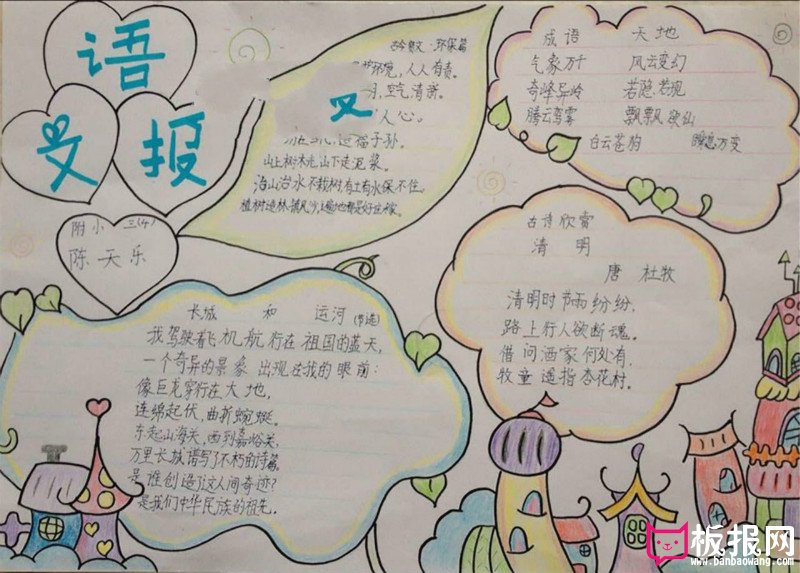 语
文 报
又
附小 三(4)
陈天乐
古今贤文·环保篇
环境,人人有责。
空气清新。
人心。
造福子孙。
山上树木光,山下走泥浆。
治山治水不栽树,有土有水保不住。
成语 天地
气象万千 风云变幻
奇峰异岭 若隐若现
腾云驾雾 飘飘欲仙
白云苍狗 瞬息万变
古诗欣赏
清明
唐 杜牧
清明时节雨纷纷,
路上行人欲断魂。
借问酒家何处有,
牧童遥指杏花村。
长城 和 运河(节选)
我驾驶着飞机航行在祖国的蓝天,
一个奇异的景象出现在我的眼前:
像巨龙穿行在大地,
连绵起伏,曲折蜿蜒。
东起山海关,西到嘉峪关,
万里长城谱写了不朽的诗篇。
是谁创造了这人间奇迹?
是我们中华民族的祖先。
板报网
www.banbaowang.com